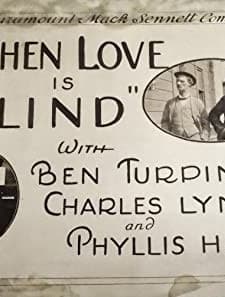 aramount Mack Sennett Com
HEN LOVE
IS
LIND"
WITH
BEN TURPIN
CHARLES LYN
and
PHYLLIS H